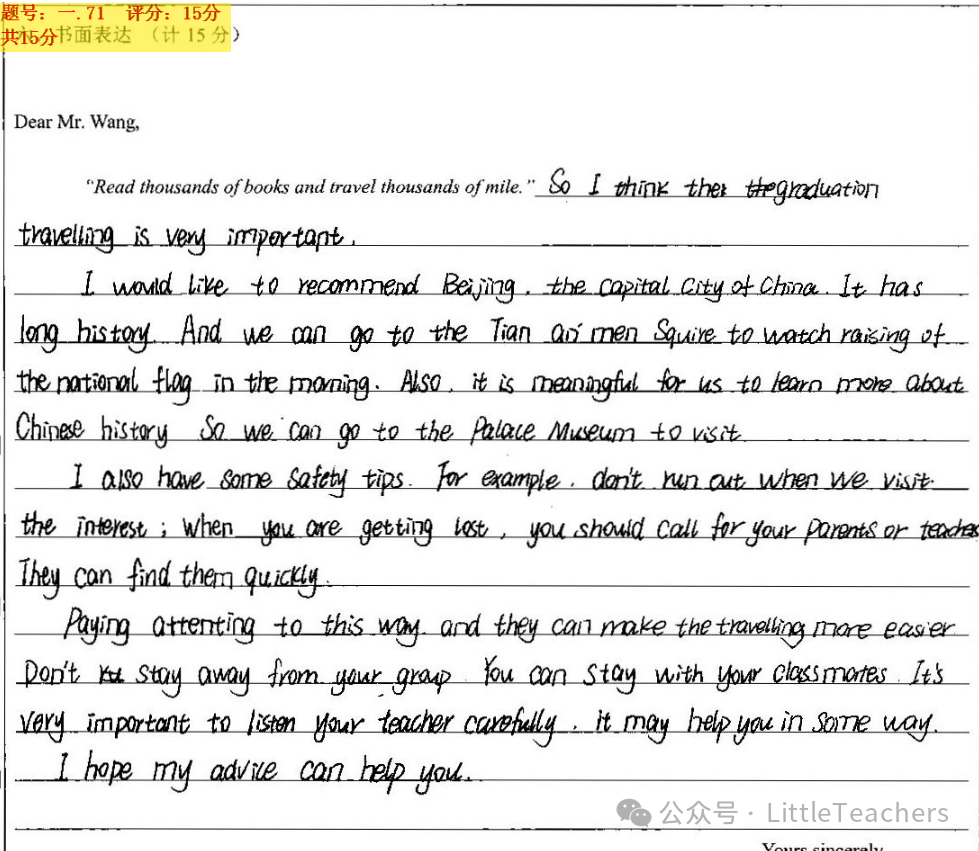 题号：一.71 评分：15分
共15分 书面表达 （计 15 分）
Dear Mr. Wang,
"Read thousands of books and travel thousands of mile." So I think the graduation
travelling is very important.
I would like to recommend Beijing, the capital city of China. It has
long history. And we can go to the Tian an men Squire to watch raising of
the national flag in the morning. Also, it is meaningful for us to learn more about
Chinese history So we can go to the Palace Museum to visit
I also have some safety tips. For example, don't run out when we visit
the interest; when you are getting lost, you should call for your parents or teacher
They can find them quickly.
Paying attenting to this way and they can make the travelling more easier
Don't stay away from your group You can stay with your classmates. It's
very important to listen your teacher carefully, it may help you in some way.
I hope my advice can help you.
公众号 · LittleTeachers
Yours sincerely